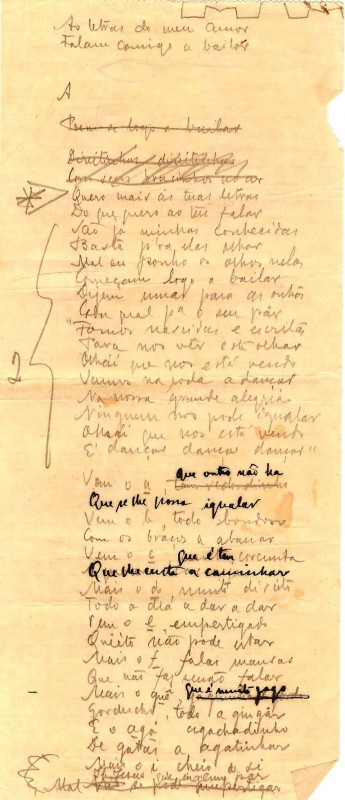 As letras do meu amor
Falam comigo a bailar
A
Põem-se logo a bailar
Direitinhas direitinhas
Com seus bracinhos no ar
Quero mais às tuas letras
Do que quero ao teu falar
São já minhas conhecidas
Basta p'ra elas olhar
Mal eu ponho os olhos nelas
Começam logo a bailar
Dizem umas para as outras
Cada qual p'a o seu par
"Fomos nascidas e escritas
Para nos ver este olhar
Olhai que nos está vendo
Vamos na roda a dançar
Na nossa grande alegria
Ninguem nos pode igualar
Olhai que nos está vendo
É dançar dançar dançar"
Vem o a que outro não há
Que se lhe possa igualar
Vem o b, todo bondoso
Com os braços a abanar
Vem o c que é tam corcunda
Que lhe custa a caminhar
Mais o d muito direito
Todo o dia a dar a dar
Vem o e, empertigado
Quieto não pode estar
Mais o f falas mansas
Que não faz senão falar
Mais o guê que é muito gago
Gorducho, todo a gingar
E o agá agachadinho
De gatas a agatinhar
Mais o i cheio de si
Mal se pode empertigar